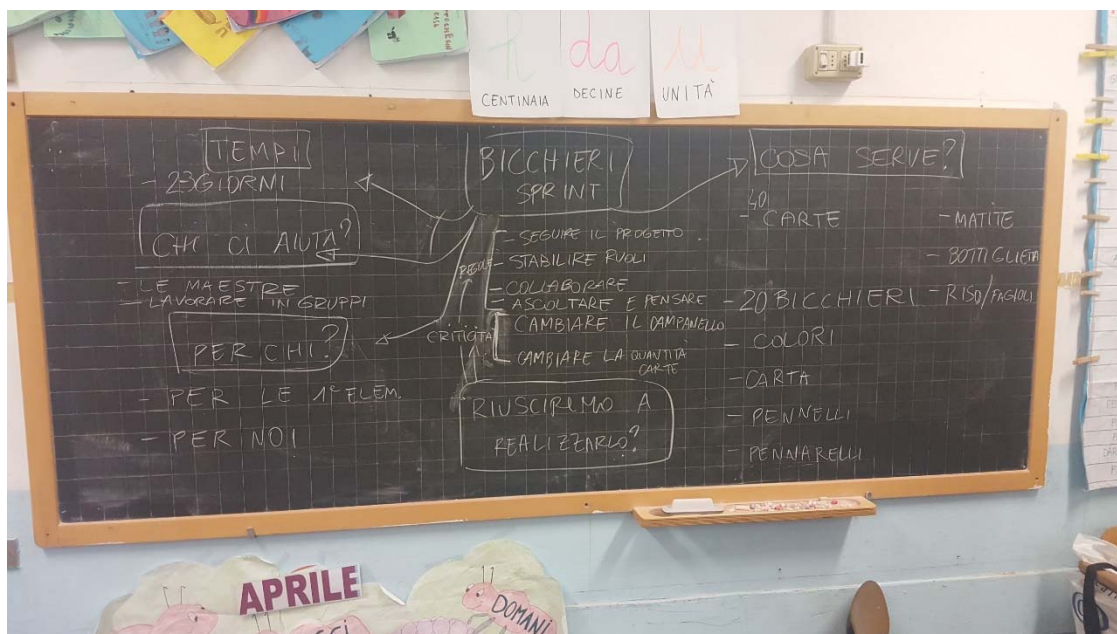 h
da
u
CENTINAIA
DECINE
UNITÀ
TEMPI
- 23 GIORNI
CHI CI AIUTA?
- LE MAESTRE
- LAVORARE IN GRUPPI
PER CHI?
- PER LE 1° ELEM.
- PER NOI
BICCHIERI
SPRINT
REGOLE
- SEGUIRE IL PROGETTO
- STABILIRE RUOLI
- COLLABORARE
- ASCOLTARE E PENSARE
CRITICITÀ
- CAMBIARE IL DAMPANELLO
- CAMBIARE LA QUANTITÀ
CARTE
RIUSCIREMO A
REALIZZARLO?
COSA SERVE?
- 40 CARTE
- 20 BICCHIERI
- COLORI
- CARTA
- PENNELLI
- PENNARELLI
- MATITE
- BOTTIGLIETA
- RISO/FAGIOLI
APRILE
DOMANI